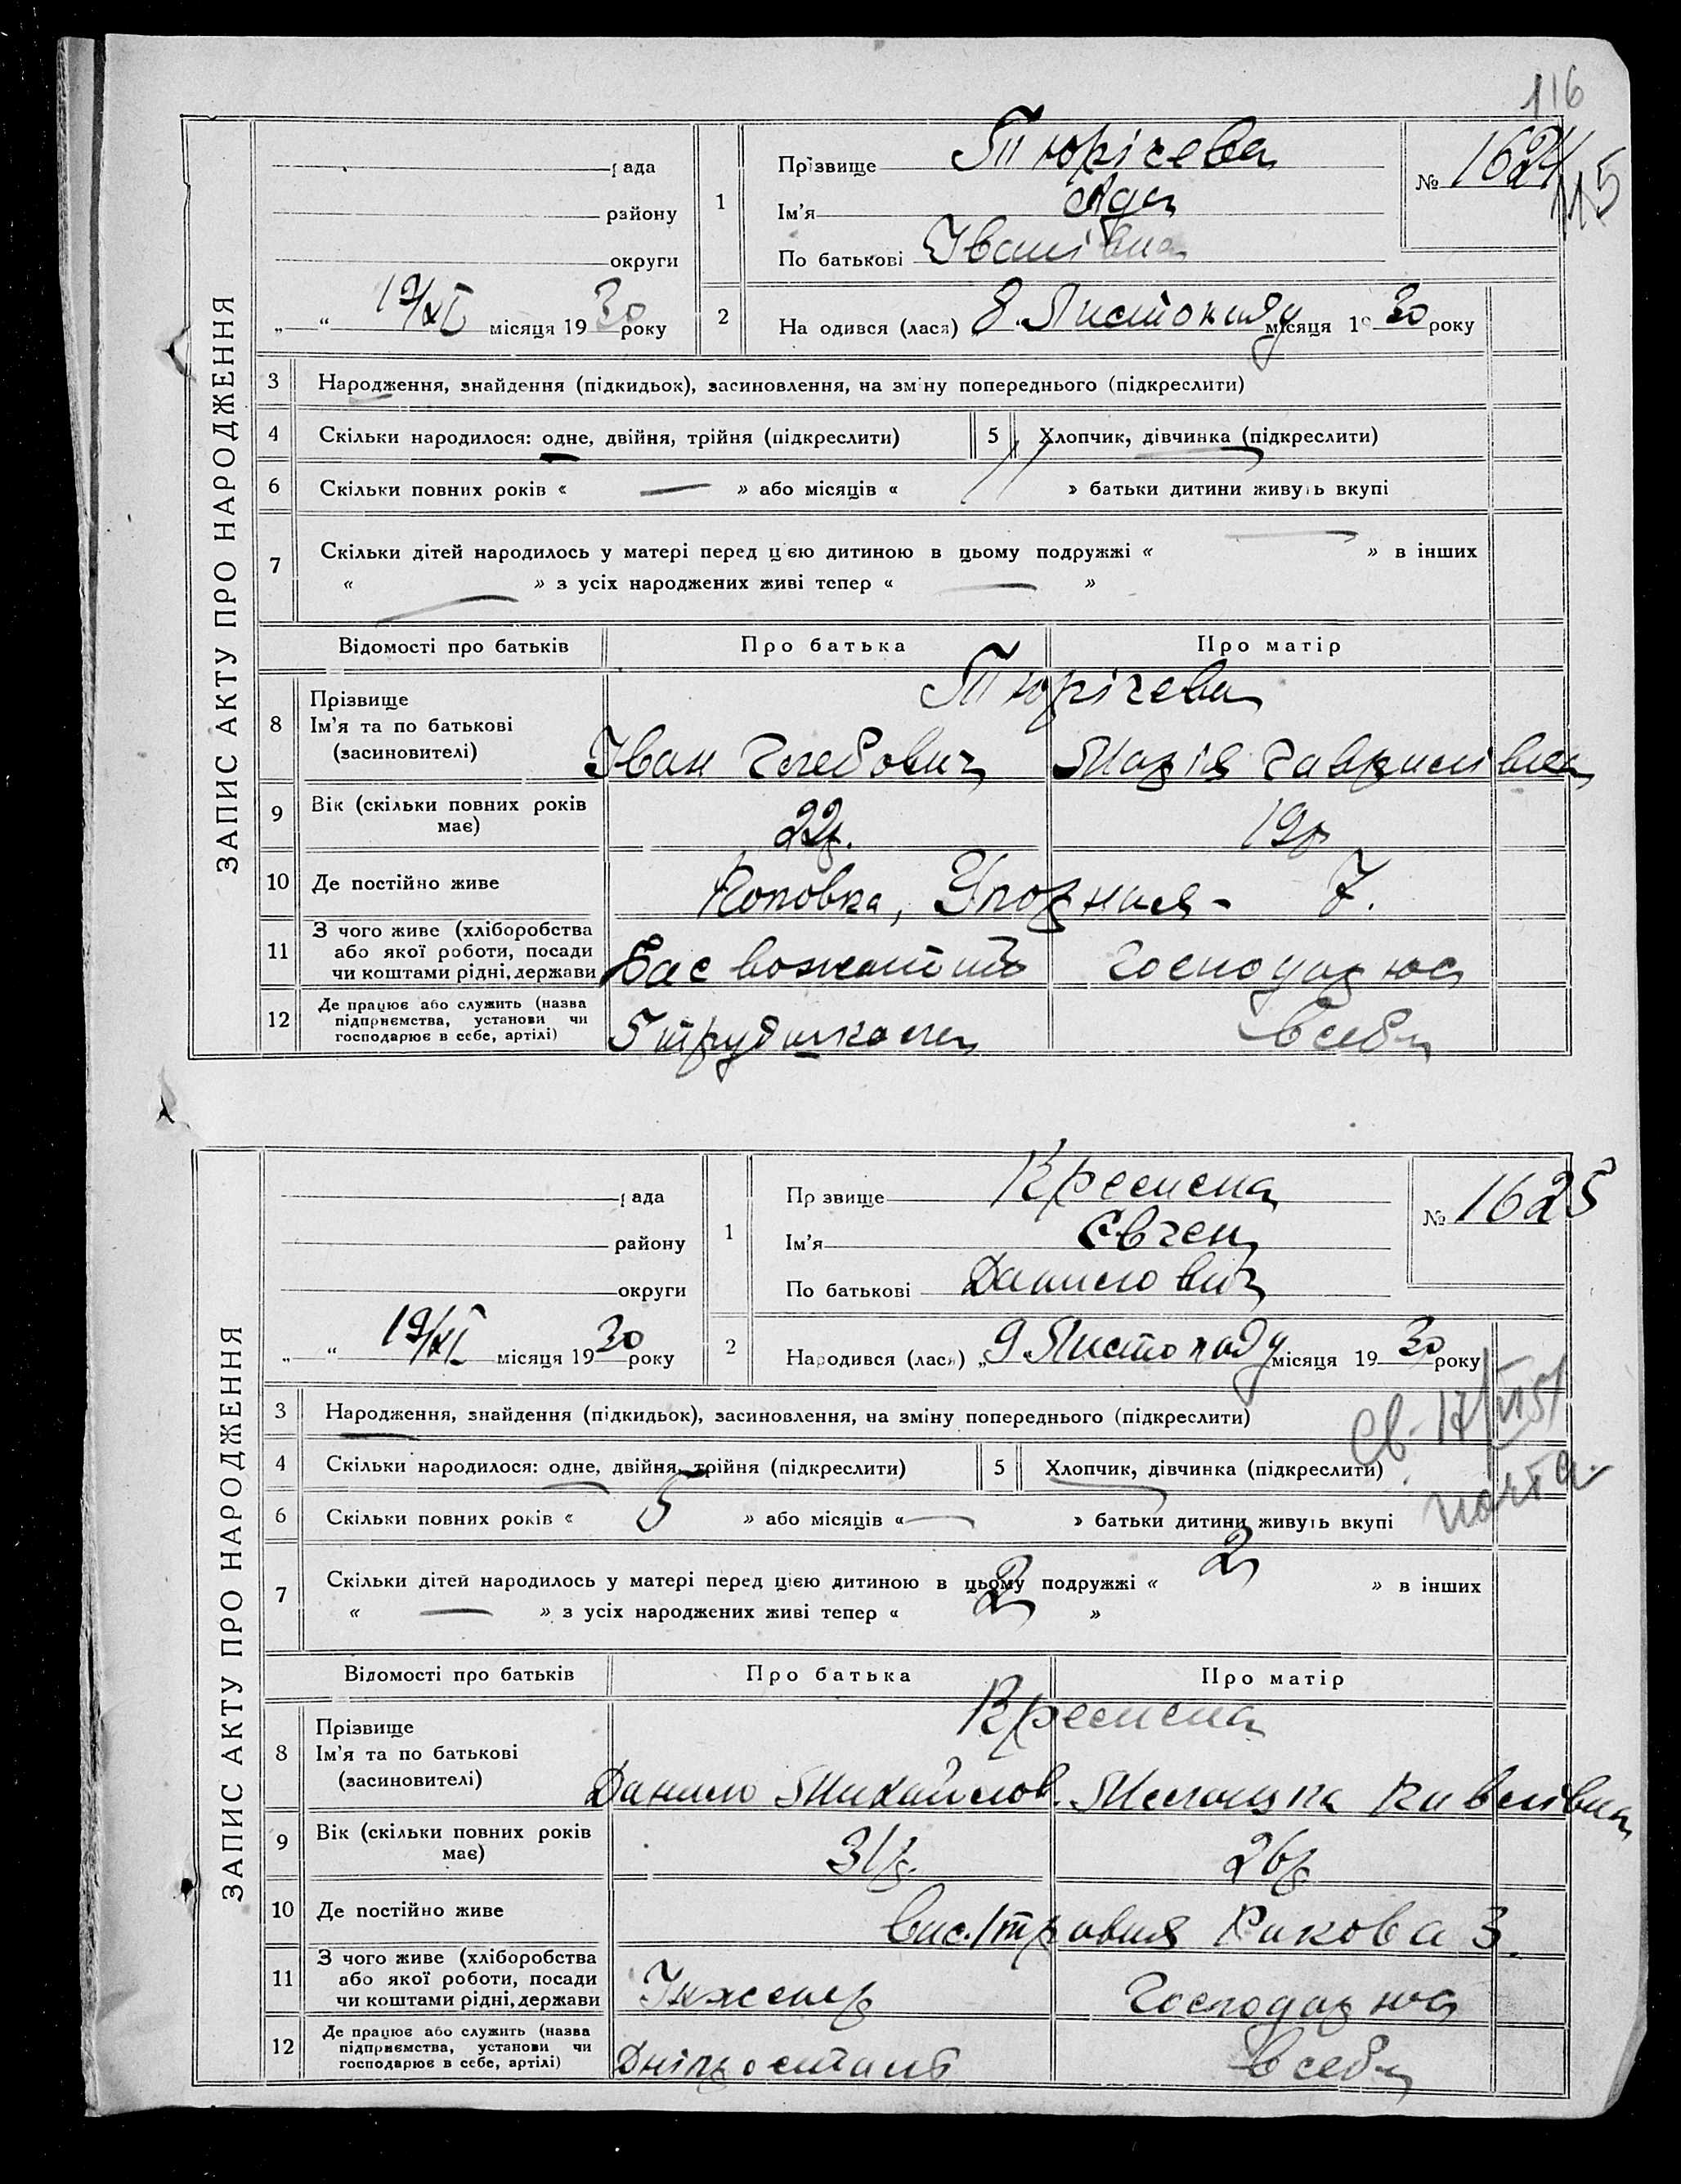 116
ЗАПИС АКТУ ПРО НАРОДЖЕННЯ
рада
району
округи
„ “ 19/XI місяця 1930 року
1
Прізвище Тюрічева
Ім’я Ада
По батькові Іванівна
№ 1624
115
2
Народився (лася) 8. Листопаду місяця 1930 року
3 Народження, знайдення (підкидьок), засиновлення, на зміну попереднього (підкреслити)
4 Скільки народилося: одне, двійня, трійня (підкреслити)
5 Хлопчик, дівчинка (підкреслити)
6 Скільки повних років « — » або місяців « 11 » батьки дитини живуть вкупі
7 Скільки дітей народилось у матері перед цією дитиною в цьому подружжі « — » в інших
« — » з усіх народжених живі тепер « — »
Відомості про батьків Про батька Про матір
8 Прізвище
Ім’я та по батькові
(засиновителі)
Тюрічева
Іван Глебович Марія Гаврилівна
9 Вік (скільки повних років має) 22р. 19р
10 Де постійно живе 7.
11 З чого живе (хліборобства
або якої роботи, посади
чи коштами рідні, держави
Господарює
12 Де працює або служить (назва
підприємства, установи чи
господарює в себе, артілі)
5 трудшкола в себе
ЗАПИС АКТУ ПРО НАРОДЖЕННЯ
рада
району
округи
„ “ 19/XI місяця 1930 року
1
Прізвище
Ім’я Євген
По батькові Данилович
№ 1625
2
Народився (лася) „9. Листопаду місяця 1930 року
3 Народження, знайдення (підкидьок), засиновлення, на зміну попереднього (підкреслити)
Св. 17/VI 51
почта
4 Скільки народилося: одне, двійня, трійня (підкреслити)
5 Хлопчик, дівчинка (підкреслити)
6 Скільки повних років « 5 » або місяців « — » батьки дитини живуть вкупі
7 Скільки дітей народилось у матері перед цією дитиною в цьому подружжі « 2 » в інших
« — » з усіх народжених живі тепер « 2 »
Відомості про батьків Про батька Про матір
8 Прізвище
Ім’я та по батькові
(засиновителі)
Данило Михайлов. Павлівна
9 Вік (скільки повних років має) 31р. 26р
10 Де постійно живе Рикова 3.
11 З чого живе (хліборобства
або якої роботи, посади
чи коштами рідні, держави
Інженер Господарює
12 Де працює або служить (назва
підприємства, установи чи
господарює в себе, артілі)
Дніпросталь в себе